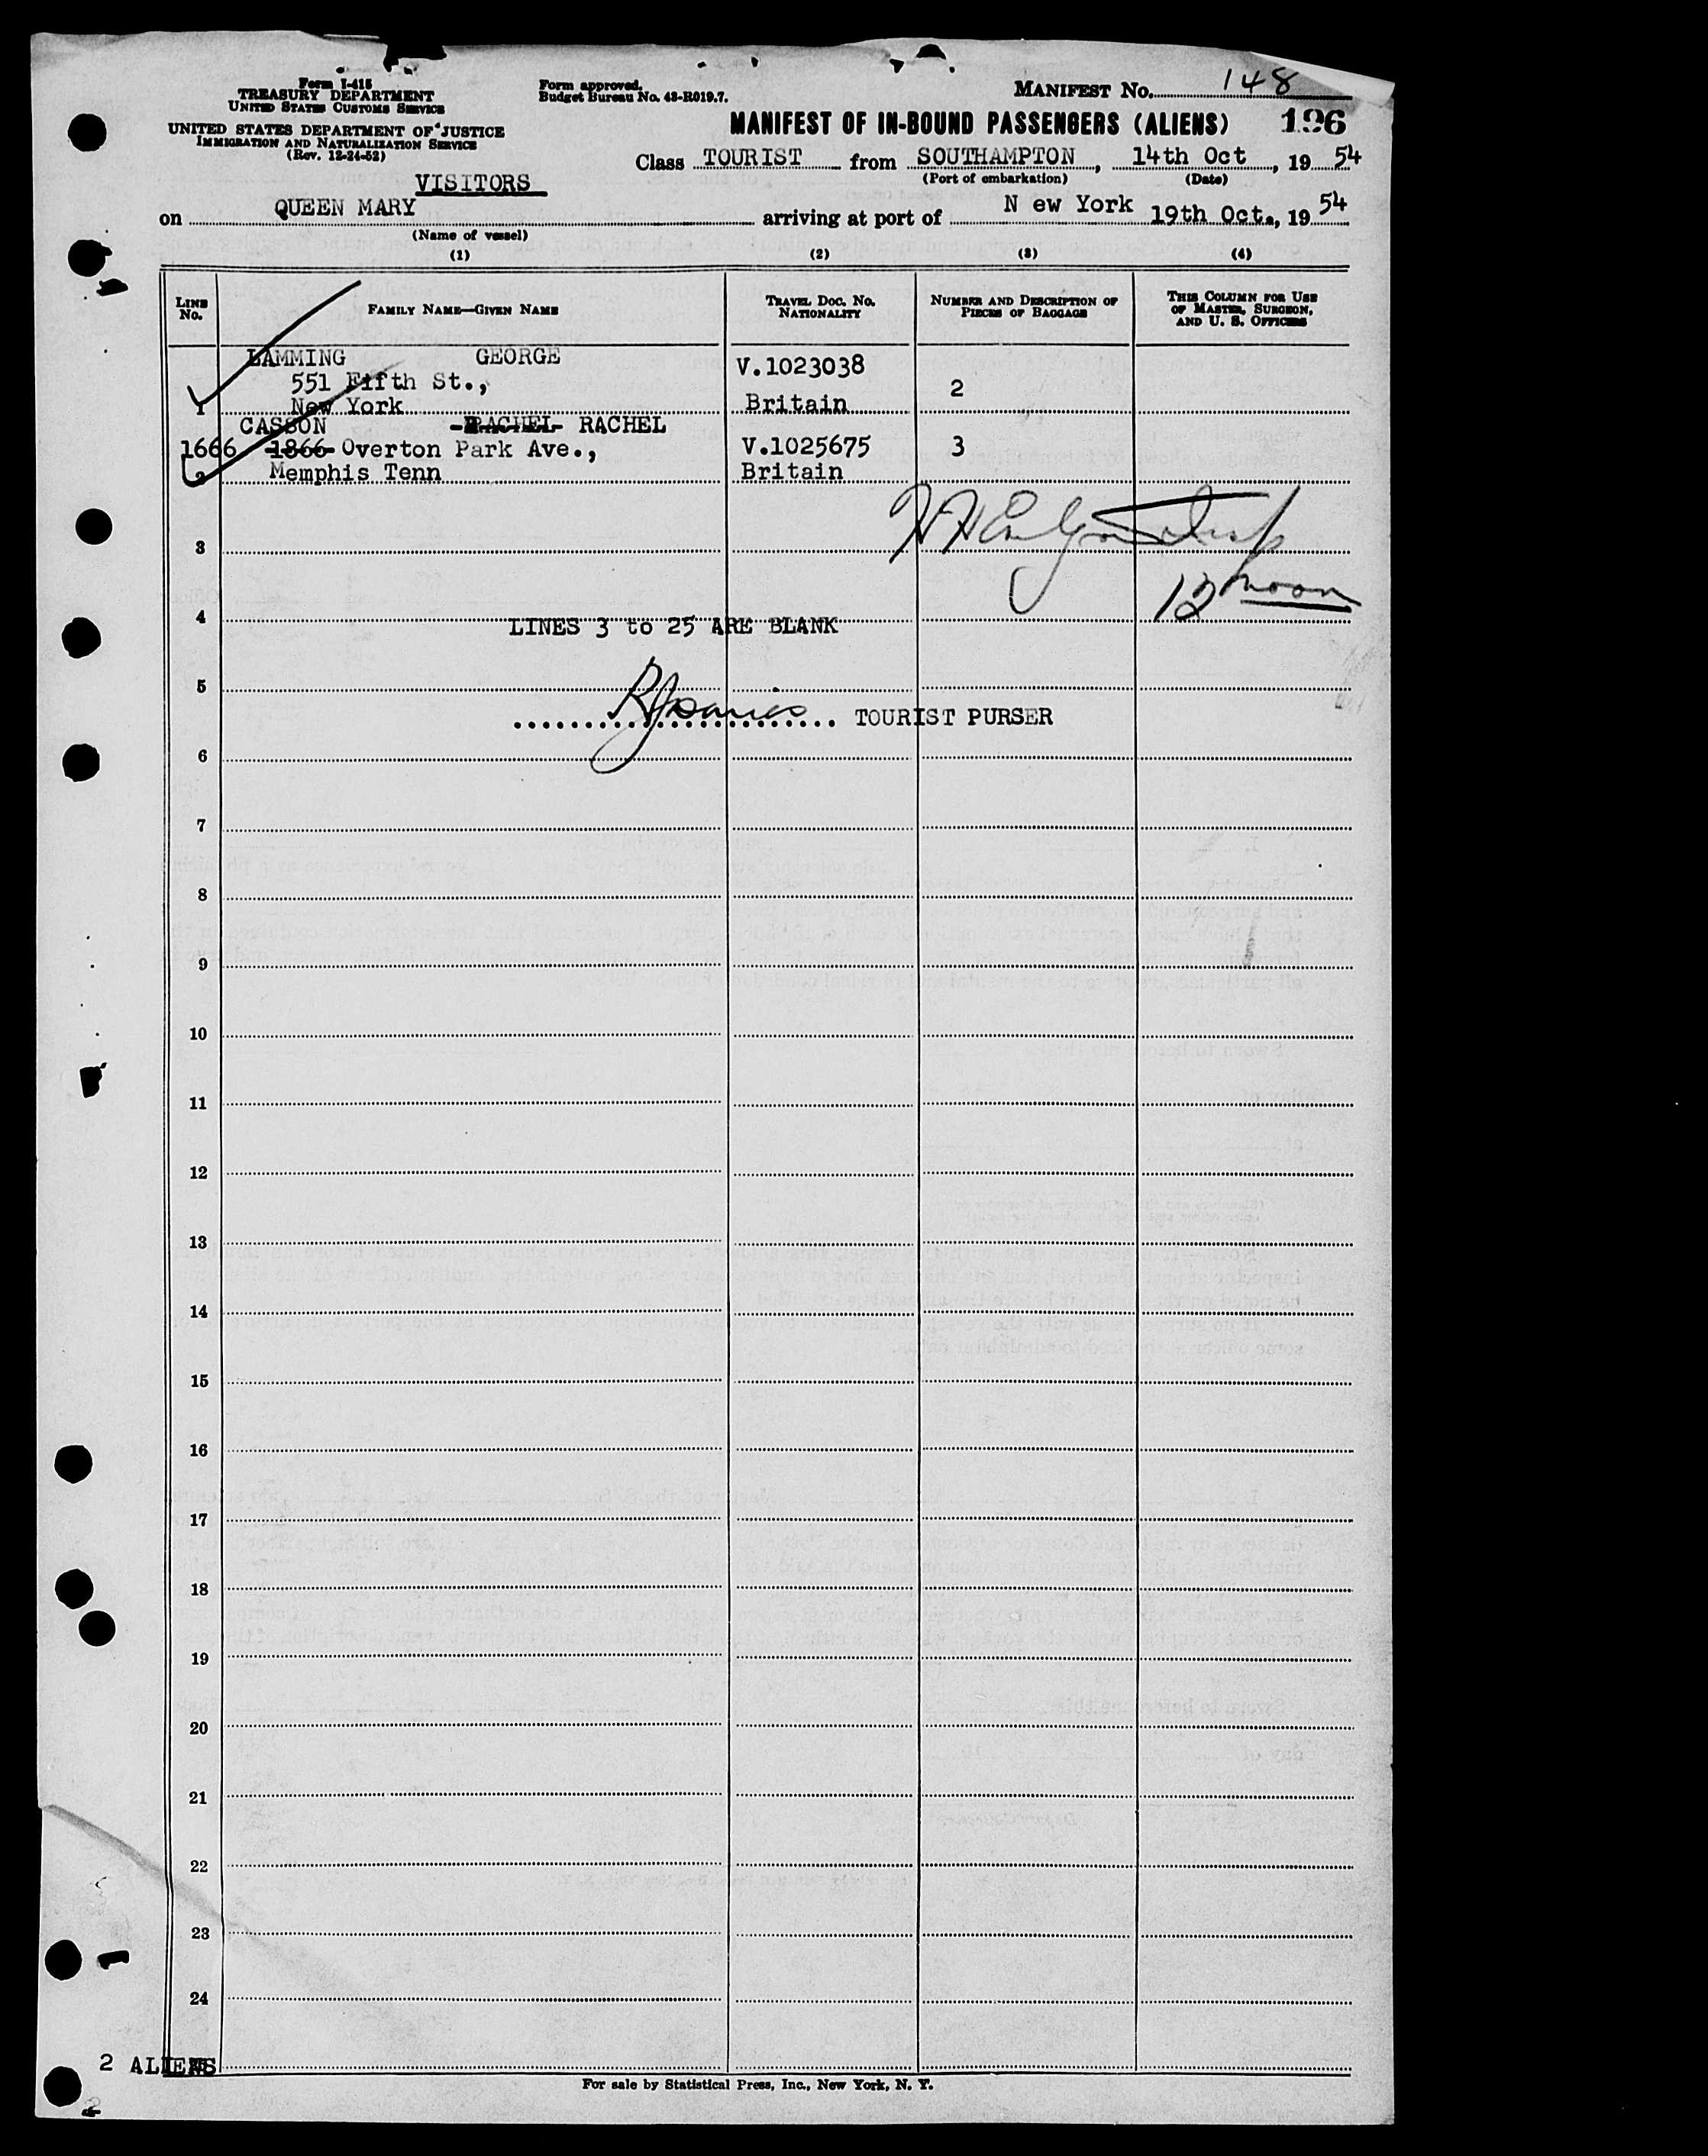 Form I-415
TREASURY DEPARTMENT
UNITED STATES CUSTOMS SERVICE
UNITED STATES DEPARTMENT OF JUSTICE
IMMIGRATION AND NATURALIZATION SERVICE
(Rev. 12-24-52)
Form approved.
Budget Bureau No. 43-R019.7.
MANIFEST NO. 148
MANIFEST OF IN-BOUND PASSENGERS (ALIENS) 196
Class TOURIST from SOUTHAMPTON, 14th Oct, 19 54
(Port of embarkation) (Date)
VISITORS
on QUEEN MARY arriving at port of N ew York 19th Oct., 19 54
(Name of vessel)
(1) (2) (3) (4)
LINE NO. FAMILY NAME—GIVEN NAME TRAVEL DOC. NO. NATIONALITY NUMBER AND DESCRIPTION OF PIECES OF BAGGAGE THIS COLUMN FOR USE OF MASTER, SURGEON, AND U. S. OFFICERS
LAMMING GEORGE V.1023038
551 Fifth St., 2
1 New York Britain
CASSON RACHEL RACHEL
1666 1866 Overton Park Ave., V.1025675 3
2 Memphis Tenn Britain
3
12 noon
4
LINES 3 to 25 ARE BLANK
5
TOURIST PURSER
6
7
8
9
10
11
12
13
14
15
16
17
18
19
20
21
22
23
24
2 ALIENS
For sale by Statistical Press, Inc., New York, N. Y.